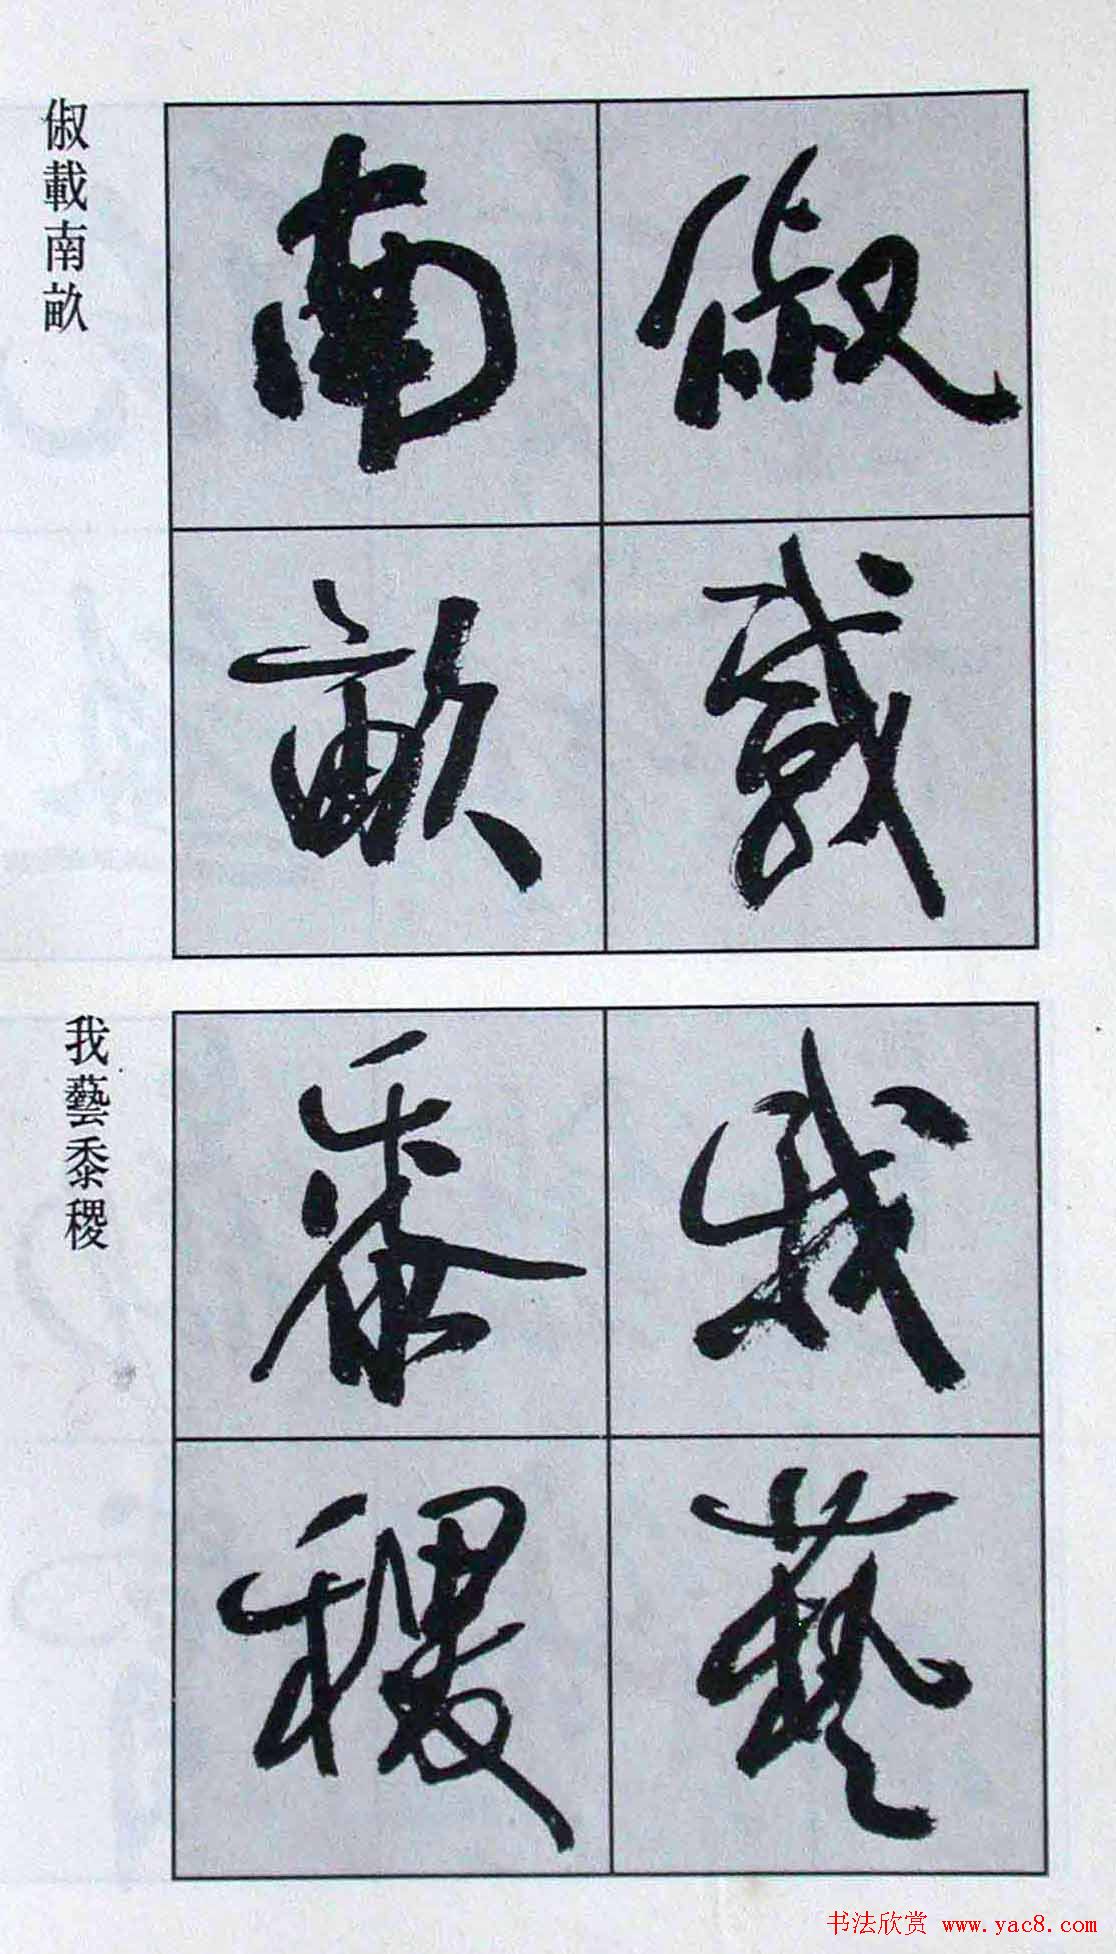 俶載
南畝
俶載南畝
我藝
黍稷
我藝黍稷
书法欣赏 www.yac8.com